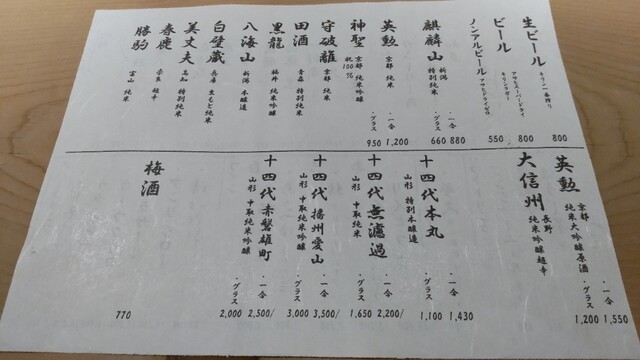 生ビール
キリン一番搾り
800
ビール
アサヒスーパードライ
キリンラガー
800
ノンアルビール
アサヒドライゼロ
550
麒麟山
新潟 特別純米
・一合 880
・グラス 660
英勲
京都 純米
・一合 1,200
・グラス 950
神聖
京都 純米吟醸
祝100%
守破離
京都 純米
田酒
青森 特別純米
黒龍
福井 純米吟醸
八海山
新潟 本醸造
白壁蔵
兵庫 生もと純米
美丈夫
高知 特別純米
春鹿
奈良 超辛
勝駒
富山 純米
英勲
京都 純米大吟醸原酒
・一合 1,550
・グラス 1,200
大信州
長野 純米吟醸超辛
十四代本丸
山形 特別本醸造
・一合 1,430
・グラス 1,100
十四代無濾過
山形 中取純米
・一合 2,200/
・グラス 1,650
十四代播州愛山
山形 中取純米吟醸
・一合 3,500/
・グラス 3,000
十四代赤磐雄町
山形 中取純米吟醸
・一合 2,500/
・グラス 2,000
梅酒
770